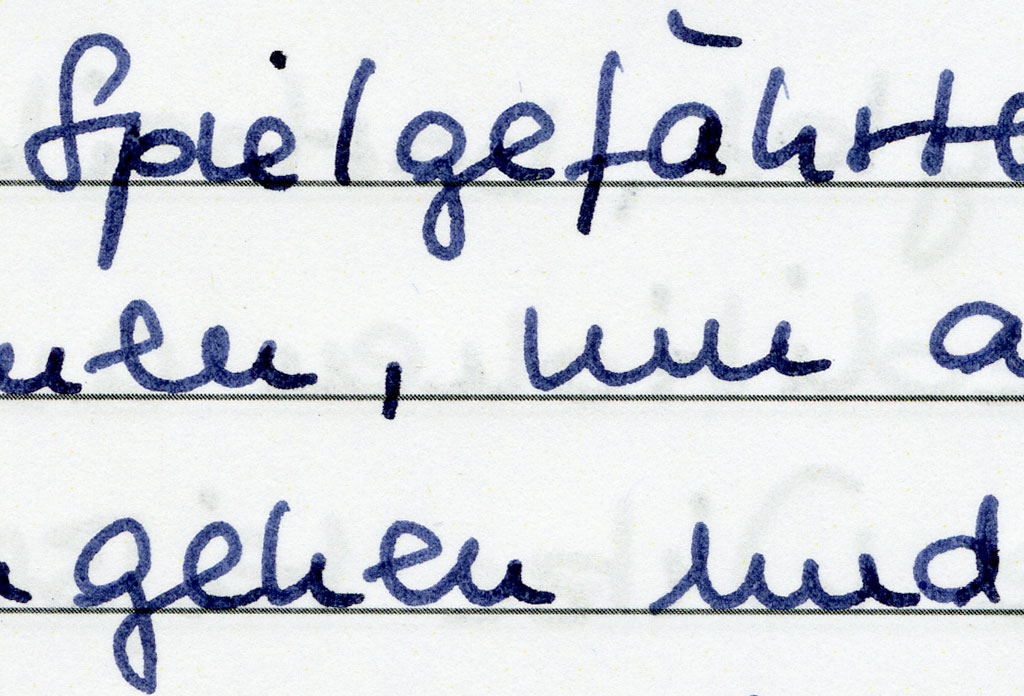 Spielgefährte
nen, um a
gehen und